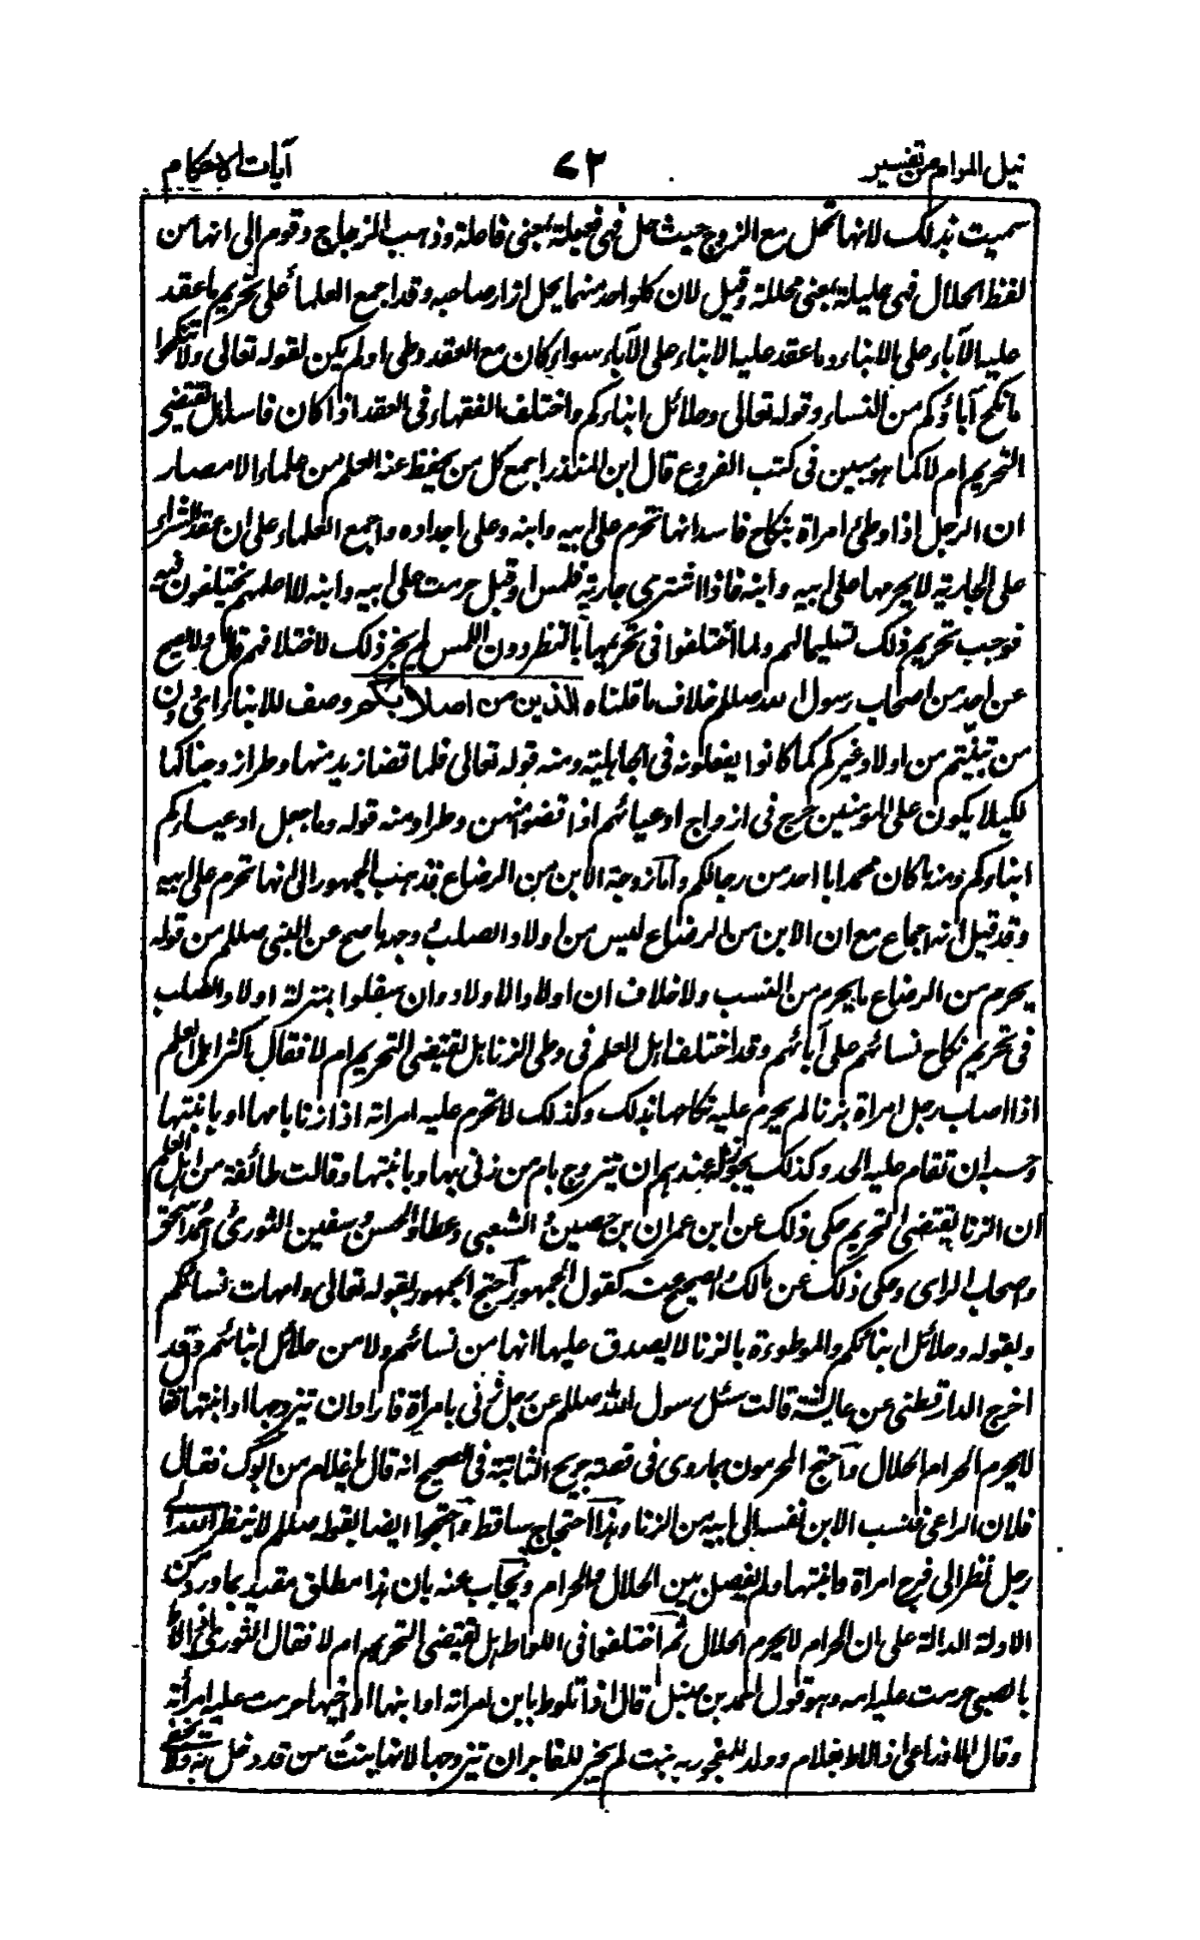 نيل المرام من تفسير ٧٣ آيات الاحكام
سميت بذلك لانها تحل مع الزوج حيث حل فهى فعيلة بمعنى فاعلة وذهب الزجاج وقوم الى انها من
لفظ الحلال فهى حليلة بمعنى محللة وقيل لان كل واحد منهما يحل ازار صاحبه وقد اجمع العلماء على تحريم ما عقد
عليه الآباء على الابناء وما عقد عليه الابناء على الآباء سواء كان مع العقد وطى او لم يكن لقوله تعالى ولا تنكحوا
ما نكح آباؤكم من النساء وقوله تعالى وحلائل ابناءكم واختلف الفقهاء فى العقد اذا كان فاسدا هل يقتضى
التحريم ام لا كما هو مبين فى كتب الفروع قال ابن المنذر اجمع كل من يحفظ عنه العلم من علماء الامصار
ان الرجل اذا وطئ امراة بنكاح فاسد انها تحرم على ابيه وابنه وعلى اجداده واجمع العلماء على ان عقد الشراء
على الجارية لا يحرمها على ابيه وابنه فاذا اشترى جارية فلمس او قبل حرمت على ابيه وابنه لا اعلمهم يختلفون فيه
فوجب تحريم ذلك تسليما لهم ولما اختلفوا فى تحريمها بالنظر دون اللمس لم يجز ذلك لاختلافهم قال ولا يصح
عن احد من اصحاب رسول الله صللم خلاف ما قلناه الذين من اصلابكم وصف للابناء اى دون
من تبنيتم من اولاد غيركم كما كانوا يفعلونه فى الجاهلية ومنه قوله تعالى فلما قضا زيد منها وطرا زوجناكها
لكيلا يكون على المؤمنين حرج فى ازواج ادعيائهم اذا قضوا منهن وطرا ومنه قوله وما جعل ادعياءكم
ابناءكم ومنه ما كان محمد ابا احد من رجالكم واما زوجة الابن من الرضاع فذهب الجمهور الى انها تحرم على ابيه
وقد قيل انه اجماع مع ان الابن من الرضاع ليس من اولاد الصلب وجهه ما صح عن النبى صللم من قوله
يحرم من الرضاع ما يحرم من النسب ولا خلاف ان اولاد الاولاد وان سفلوا بمنزلة اولاد الصلب
فى تحريم نكاح نسائهم على آبائهم وقد اختلف اهل العلم فى وطى الزنا هل يقتضى التحريم ام لا فقال اكثر اهل العلم
اذا اصاب رجل امراة بزنا لم يحرم عليه نكاحها بذلك وكذلك لا تحرم عليه امراته اذا زنا بامها او بابنتها
وحسبه ان تقام عليه الحد وكذلك يجوز له عندهم ان يتزوج بام من زنى بها وبابنتها وقالت طائفة من اهل العلم
ان الزنا يقتضى التحريم حكى ذلك عن ابن عمران بن حصين و الشعبى وعطاء والحسن وسفين الثورى واحمد واسحق
واصحاب الراى وحكى ذلك عن مالك والصحيح عنه كقول الجمهور احتج الجمهور لقوله تعالى وامهات نسائكم
ولقوله وحلائل ابنائكم والموطوءة بالزنا لا يصدق عليها انها من نسائهم ولا من حلائل ابنائهم وقد
اخرج الدارقطنى عن عائشة قالت سئل رسول الله صللم عن رجل زنى بامراة فاراد ان يتزوجها او ابنتها فقا
لا يحرم الحرام الحلال واحتج المحرمون بما روى فى قصة جريج الثابتة فى الصحيح انه قال يا غلام من ابوك فقال
فلان الراعى فنسب الابن نفسه الى ابيه من الزنا وهذا احتجاج ساقط واحتجوا ايضا بقوله صللم لا ينظر الله الى
رجل نظر الى فرج امراة وابنتها ولم يفصل بين الحلال والحرام ويجاب عنه بان هذا مطلق مقيد بما ورد من
الادلة الدالة على ان الحرام لا يحرم الحلال ثم اختلفوا فى اللواط هل يقتضى التحريم ام لا فقال الثورى اذا لاط
بالصبى حرمت عليه امه وهو قول احمد بن حنبل قال اذا تلوط بابن امراته او ابنها او اخيها حرمت عليه امرأته
وقال الاوزاعى اذا لاط بغلام وولد للمفجور به بنت لم يجز للفاجر ان يتزوجها لانها بنت من قد دخل به ولا يخفى